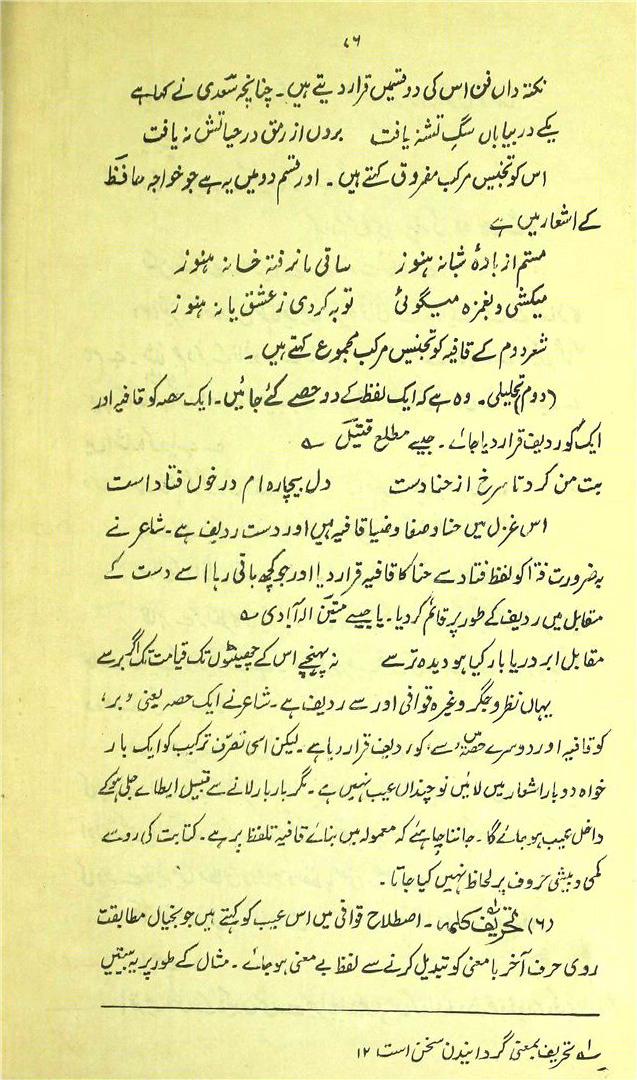 ۷۶
نکتہ داں فن اس کی دو قسمیں قرار دیتے ہیں۔ چنانچہ سعدی نے کہا ہے
یکے در بیاباں سگِ تشنہ یافت     بروں از رمق در حیاتش نہ یافت
اس کو تجنیس مرکب مفروق کہتے ہیں۔ اور قسم دو میں یہ ہے جو خواجہ حافظ
کے اشعار میں ہے
مستم از بادۂ شبانہ ہنوز     ساقی ما نرفتہ خانہ ہنوز
میکشی و بغمزہ میگوئی     توبہ کردی ز عشق یا نہ ہنوز
شعر دوم کے قافیہ کو تجنیس مرکب مجموع کہتے ہیں۔
(دوم) تحلیلی۔ وہ ہے کہ ایک لفظ کے دو حصے کئے جائیں۔ ایک حصہ کو قافیہ اور
ایک کو ردیف قرار دیا جائے۔ جیسے مطلع قتیل ؎
بت من کرد تا سرخ از حنا دست     دل بیچارہ ام در خوں فتاد است
اس غزل میں حنا و صفا و ضیا قافیہ ہیں اور دست ردیف ہے۔ شاعر نے
بہ ضرورت فتا کو لفظ فتاد سے حنا کا قافیہ قرار دیا اور جو کچھ باقی رہا اسے دست کے
مقابل میں ردیف کے طور پر قائم کر دیا۔ یا جیسے متین الہ آبادی ؎
مقابل ابر دریا بار کیا ہو دیدہ تر سے     نہ پہنچے اس کے چھینٹوں تک قیامت تک اگر برسے
یہاں نظر و جگر وغیرہ قوافی اور سے ردیف ہے۔ شاعر نے ایک حصہ یعنی ’بر‘
کو قافیہ اور دوسرے حصہ میں ’سے‘ کو ردیف قرار دیا ہے۔ لیکن اسی تصرف ترکیب کو ایک بار
خواہ دوبار اشعار میں لائیں تو چنداں عیب نہیں ہے۔ مگر بار بار لانے سے قبیل ایطائے جلی ہو کے
داخل عیب ہو جائے گا۔ جاننا چاہئے کہ معمولہ میں بنائے قافیہ تلفظ پر ہے۔ کتابت کی رو سے
کمی و بیشی حروف پر لحاظ نہیں کیا جاتا۔
(۶) تحریف کلمہ۔ اصطلاح قوافی میں اس عیب کو کہتے ہیں جو بخیال مطابقت
روی حرف آخر با معنی کو تبدیل کرنے سے لفظ بے معنی ہو جائے۔ مثال کے طور پر یہ بیتیں
لہ تحریف بمعنی گردانیدن سخن است ۱۲